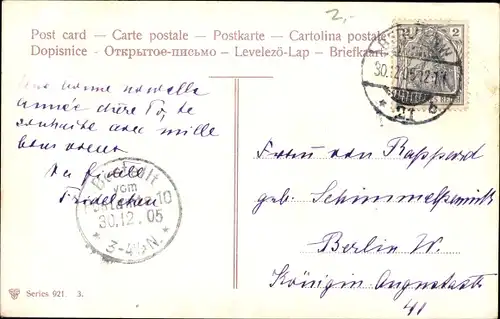 2,-
Post card — Carte postale — Postkarte — Cartolina postale
Dopisnice - Открытое-письмо - Levelező-Lap - Briefkaart
2
30.12.05.12-1
une bonne nouvelle
année chère
souhaite avec mille
bons voeux
ta fidèle
Fridelchen
Bestellt
vom
Postamte 10
30.12.05
3-4½N.
Frau von Rappard
geb. Schimmelpfennig
Berlin W.
Königin Augustastr
41
Series 921. 3.